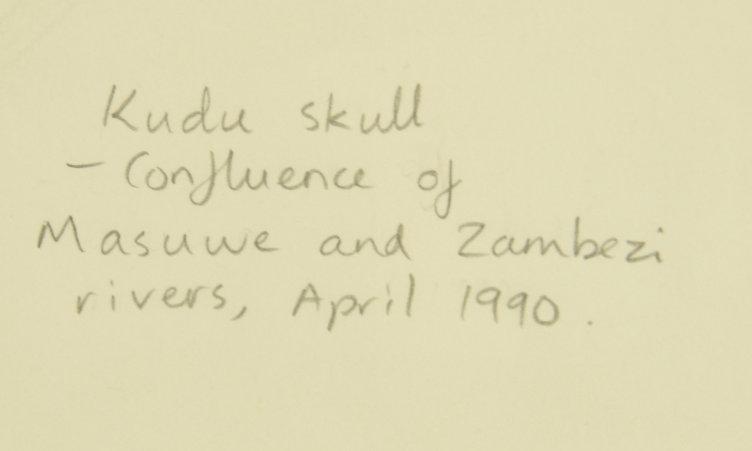 Kudu skull
- Confluence of
Masuwe and Zambezi
rivers, April 1990.